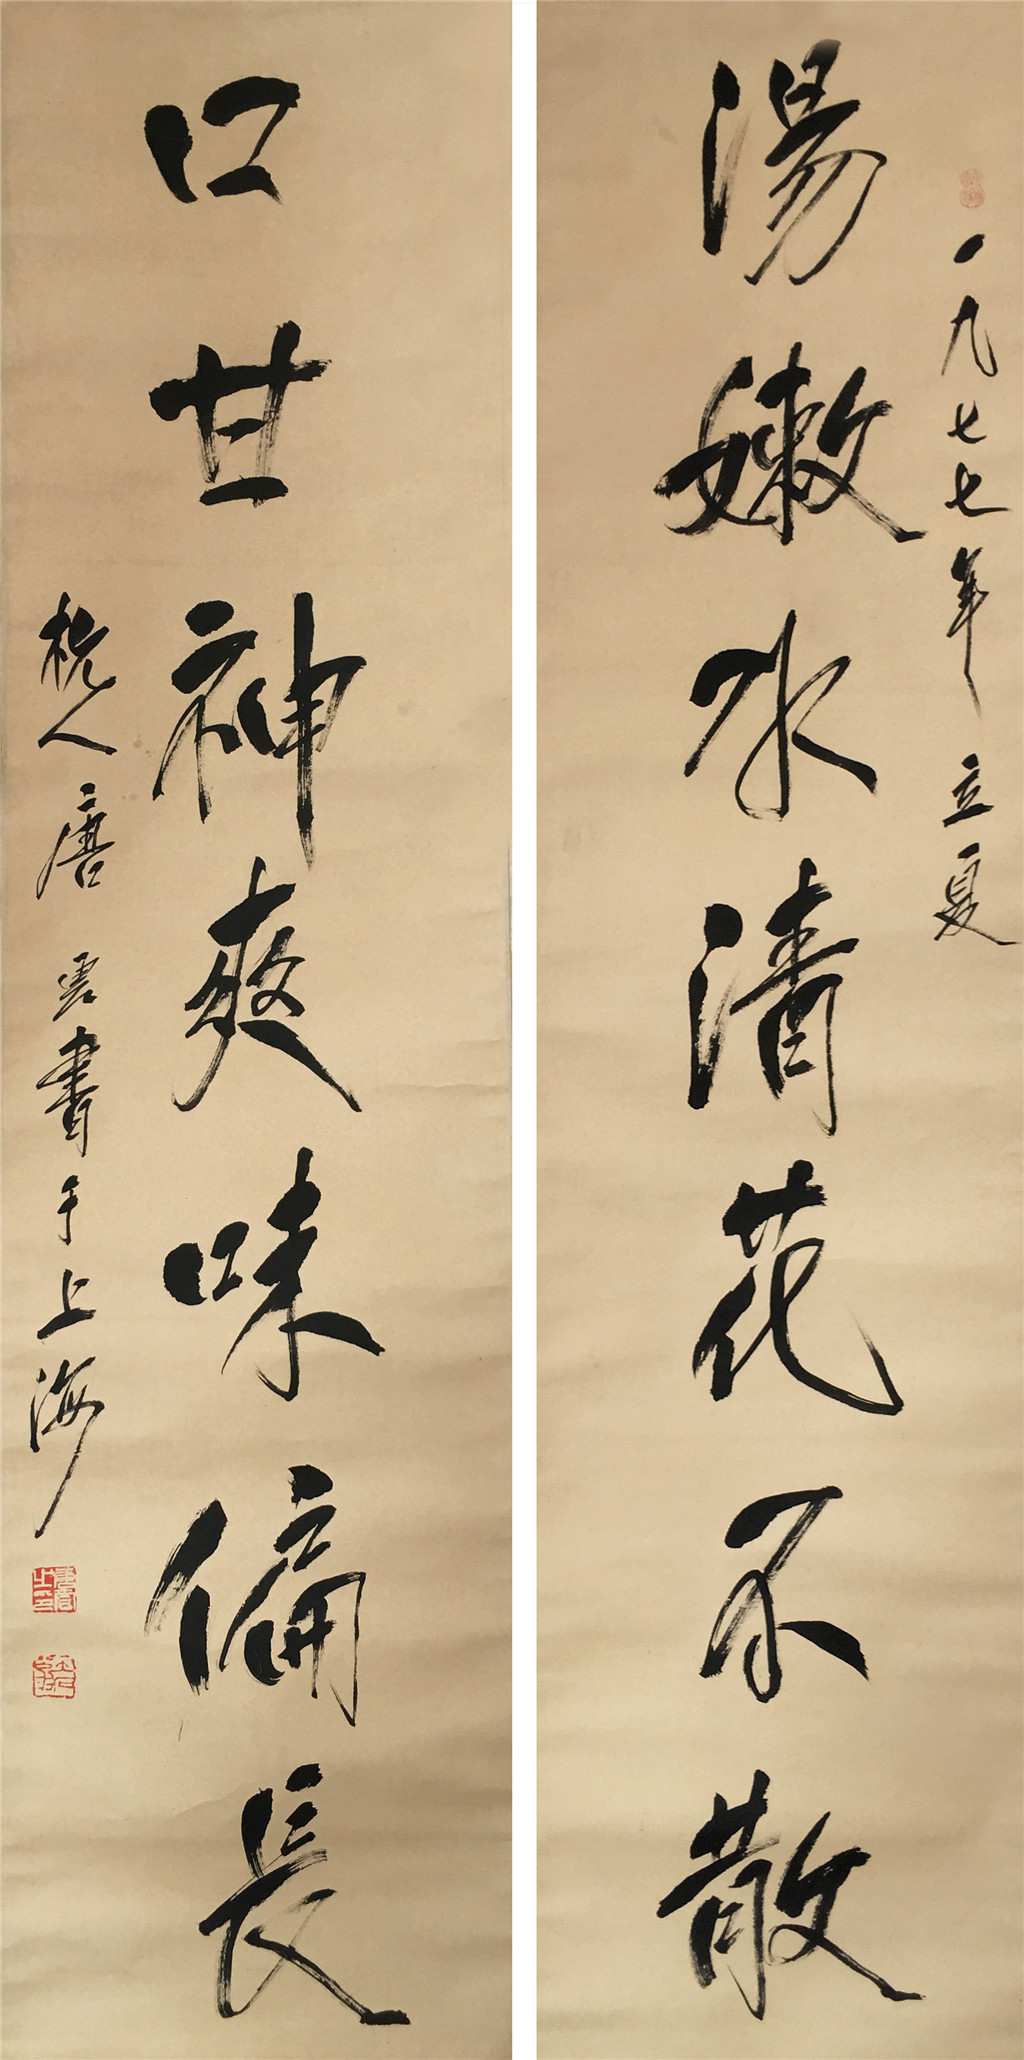 一九七七年立夏
湯嫩水清花不散
口甘神爽味偏長
杭人唐雲書于上海